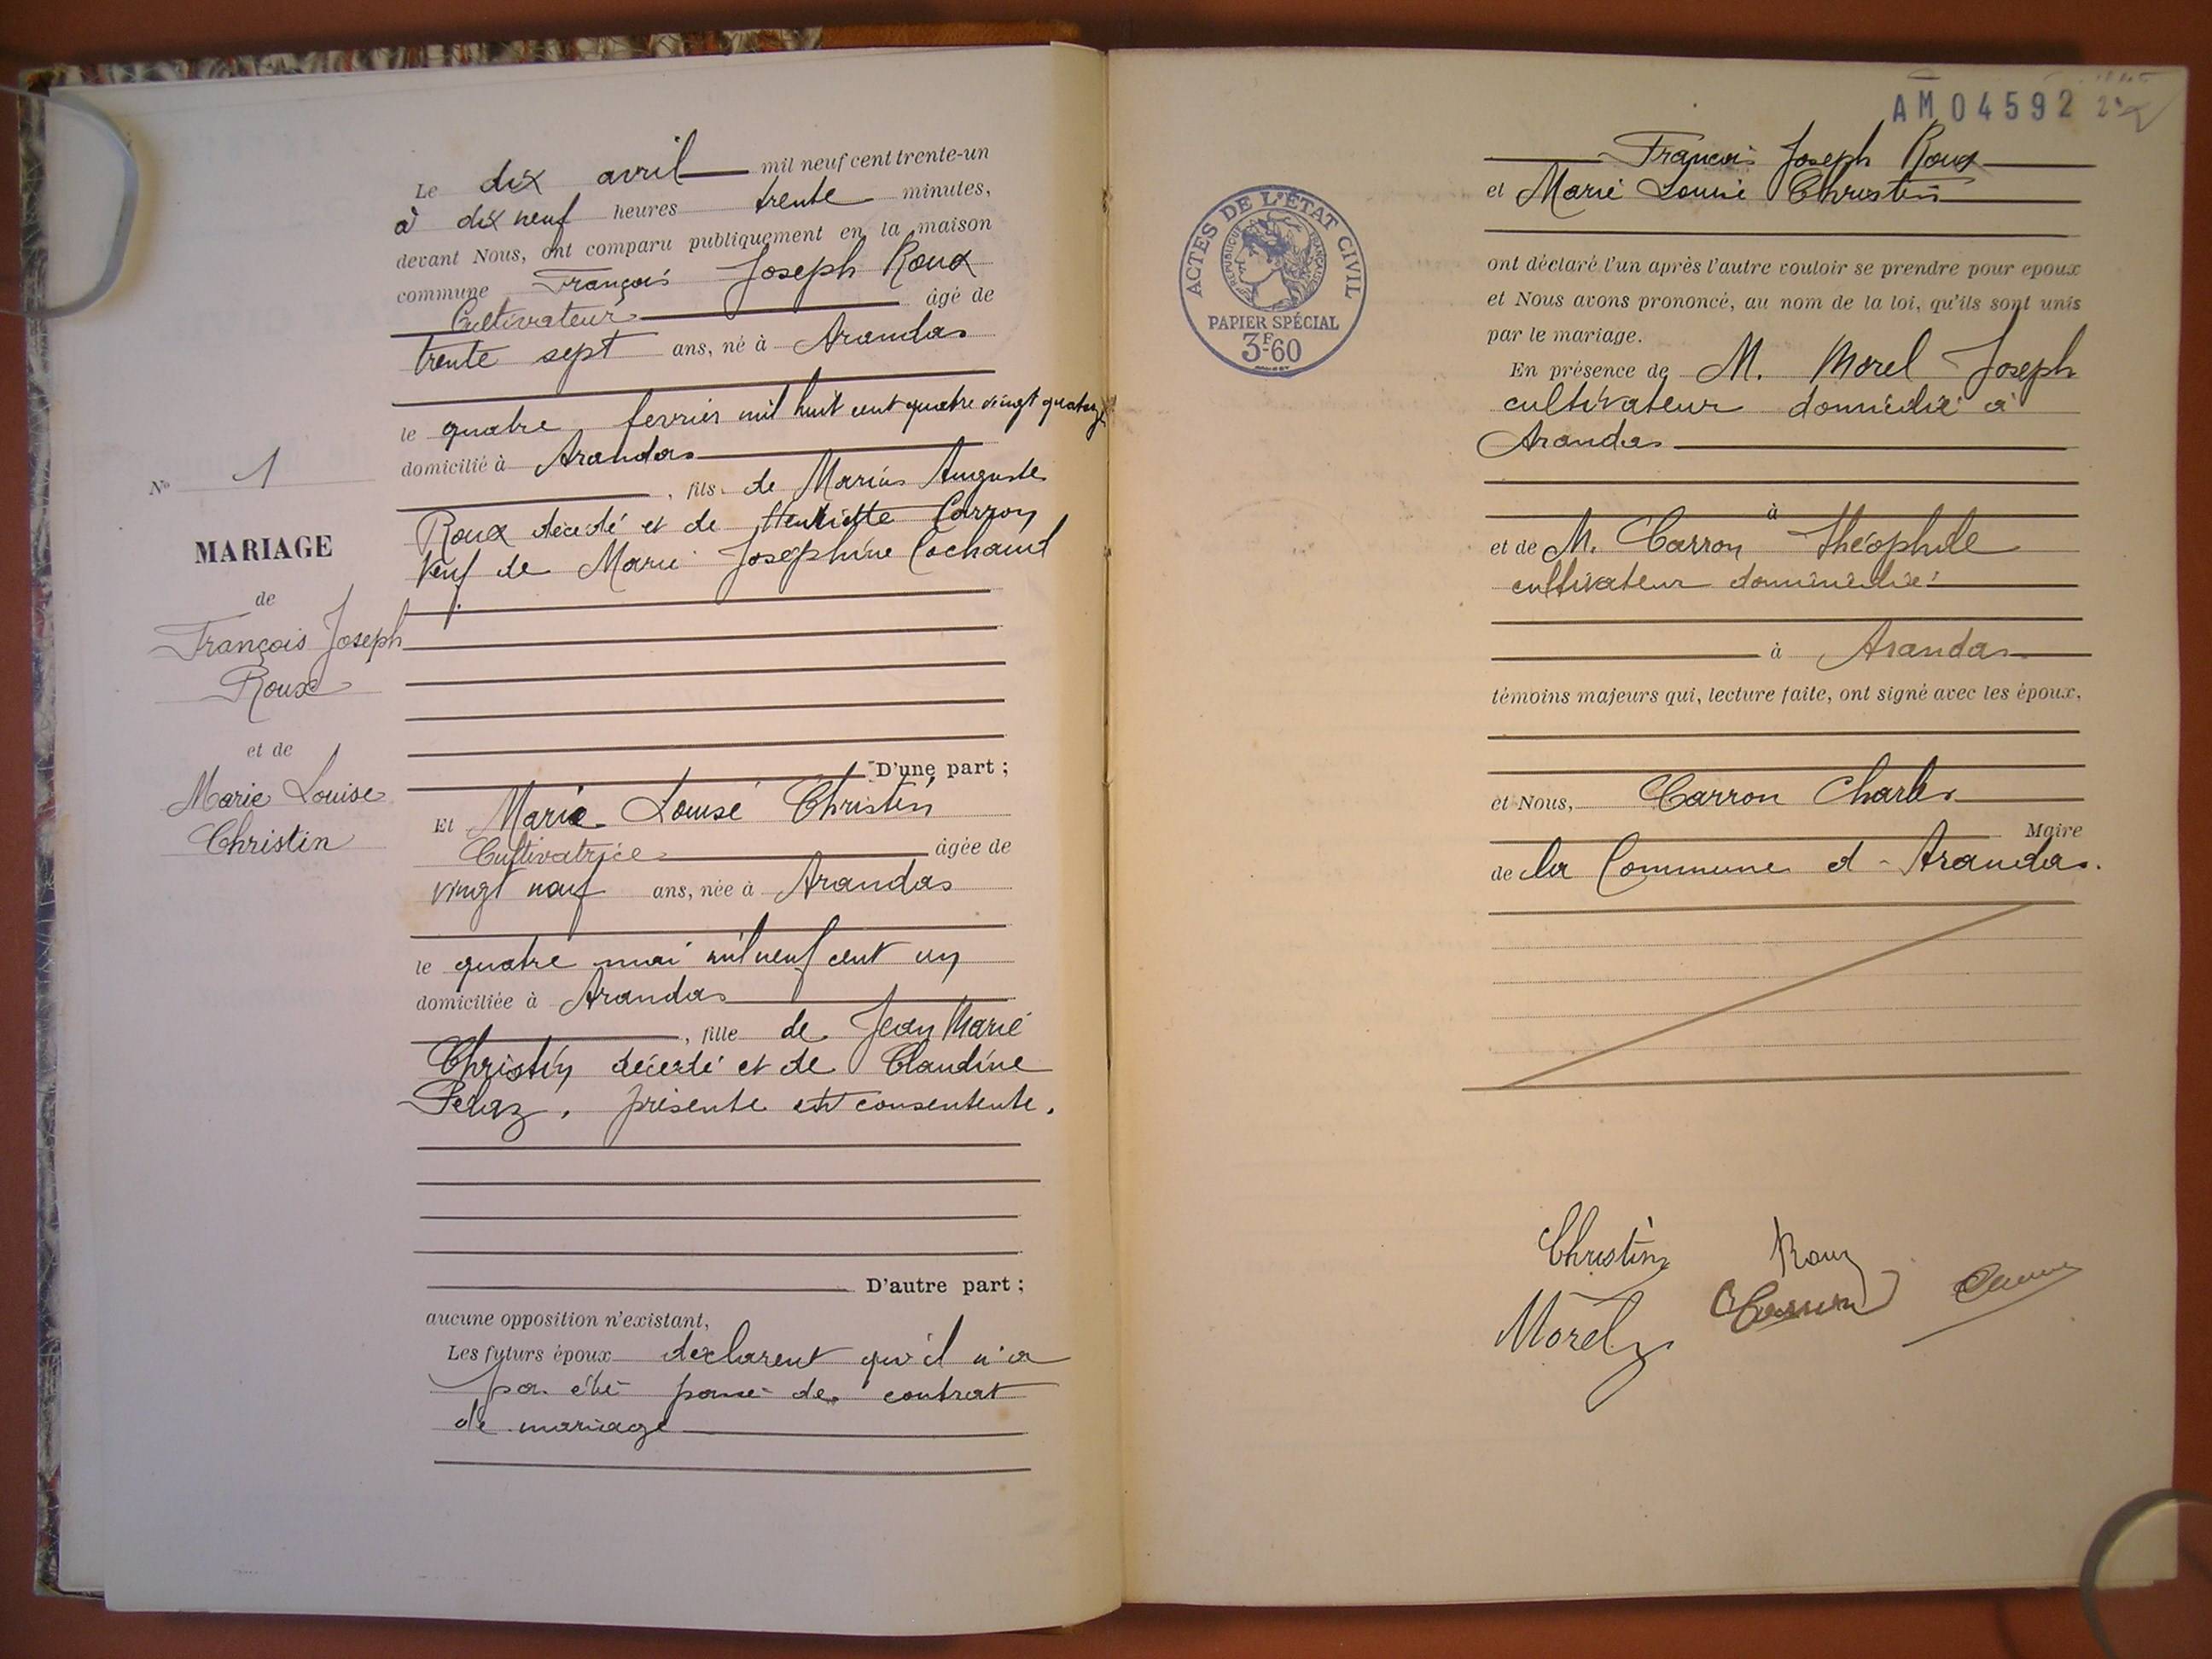 Le dix avril mil neuf cent trente-un
à dix neuf heures trente minutes,
devant Nous, ont comparu publiquement en la maison
commune François Joseph Roux
Cultivateur âgé de
trente sept ans, né à Arandas
le quatre fevrier mil huit cent quatre vingt quatorze
domicilié à Arandas
, fils de Marius Auguste
Roux décédé et de Henriette Carron
Veuf de Marie Joséphine Cochand
N° 1
MARIAGE
de
François Joseph
Roux
et de
Marie Louise
Christin
D'une part ;
Et Marie Louise Christin
Cultivatrice âgée de
vingt neuf ans, née à Arandas
le quatre mai mil neuf cent un
domiciliée à Arandas
, fille de Jean Marie
Christin décédé et de Claudine
Pelaz, présente et consentente.
D'autre part ;
aucune opposition n'existant,
Les futurs époux declarent qu'il n'a
pas été passé de contrat
de mariage
AM04592
François Joseph Roux
et Marie Louise Christin
ACTES DE L'ÉTAT CIVIL
RÉPUBLIQUE FRANÇAISE
PAPIER SPÉCIAL
3F60
ont déclaré l'un après l'autre vouloir se prendre pour époux
et Nous avons prononcé, au nom de la loi, qu'ils sont unis
par le mariage.
En présence de M. Morel Joseph
cultivateur domicilié à
Arandas
à
et de M. Carron Théophile
cultivateur dominicilié
à Arandas
témoins majeurs qui, lecture faite, ont signé avec les époux,
et Nous, Carron Charles
Maire
de la Commune d'Arandas.
Christin Roux
Morel Carron